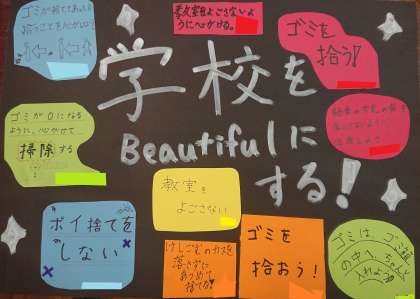 ゴミが捨ててあったら
拾うことを心がける
教室をよごさないよ
うに心がける。
ゴミを
拾う!
学校を
Beautifulに
する!
ゴミが0になる
ように、心がけて
掃除する
教室を
よごさない
"ポイ捨てを
しない"
けしごむのカスを
落さずに
あつめて
捨てる!
ゴミを
拾おう!
ゴミは、ゴミ箱
の中へ、ちゃんと
入れよう